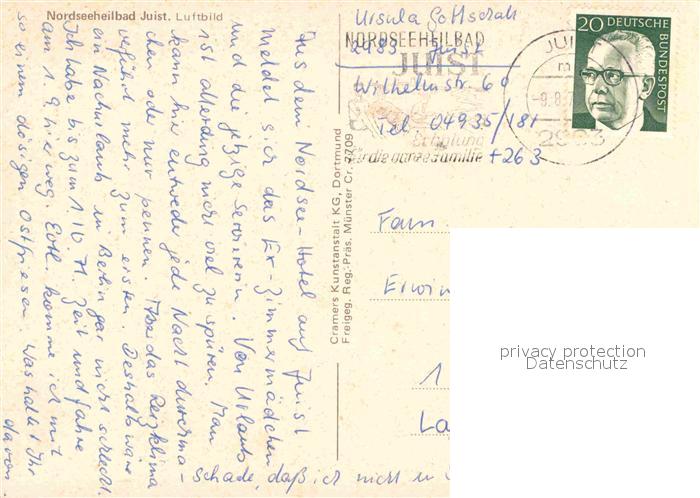 Nordseeheilbad Juist. Luftbild
Aus dem Nordsee-Hotel auf Juist
meldet sich das Ex-Zimmermädchen
und die jetzige Serviererin. Von Urlaub
ist allerding nicht viel zu spüren. Man
kann hier entweder jede Nacht durchma-
chen oder nur pennen. Aber das Reizklima
verführt mehr zum ersten. Deshalb wäre
ein Nachurlaub in Berlin gar nicht schlecht.
Ich habe bis zum 1.10.71 Zeit und fahre
am 1.9. hier weg. Evtl. komme ich mit
so einem dösigen Ostfriesen. Was haltet Ihr
davon
schade, daß ich nicht in
Cramers Kunstanstalt KG, Dortmund
Freigeg. Reg.-Präs. Münster Cr. 7709
Ursula Gottschalk
2983 Juist
Wilhelmstr. 60
Tel. 04935/181
+263
NORDSEEHEILBAD
JUIST
Erholung
für die ganze Familie
JUIST
2983
20 DEUTSCHE
BUNDESPOST
Fam.
Erwin
1
La
privacy protection
Datenschutz